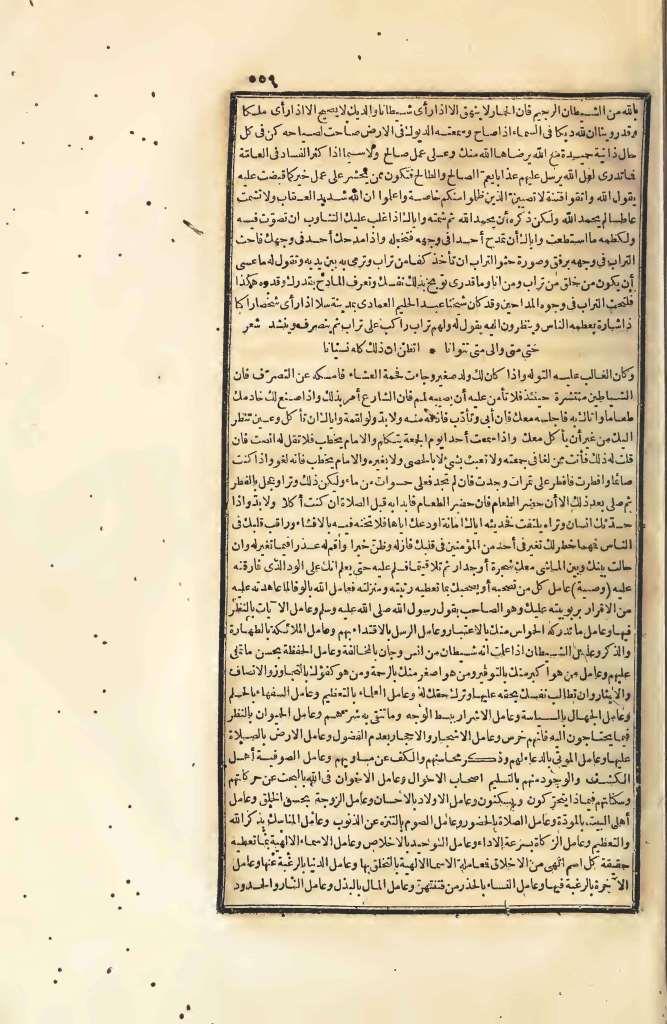 ٥٥٩
بالله من الشيطان الرجيم فان الحمار لا ينهق الا اذا رأى شيطانا والديك لا يصيح الا اذا رأى ملكا
وقد روينا ان لله ديكا في السماء اذا صاح وسمعته الديوك في الارض صاحت لصياحه كن في كل
حال ذا نية حميدة مع الله يرضاها الله منك وعلى عمل صالح ولا سيما اذا كثر الفساد في العامة
فما تدرى لعل الله يرسل عليهم عذابا يعم الصالح والطالح فتكون ممن يحشر على عمل خير كما قبضت عليه
يقول الله واتقوا فتنة لا تصيبن الذين ظلموا منكم خاصة واعلموا ان الله شديد العقاب ولا تشمت
عاطسا لم يحمد الله ولكن ذكره أن يحمد الله ثم شمته واياك اذا غلب عليك التثاوب ان تصوت فيه
ولكظمه ما استطعت واياك أن تمدح أحدا في وجهه فتخجله واذا مدحك أحد في وجهك فاحث
التراب في وجهه برفق وصورة حثو التراب ان تأخذ كفا من تراب وترمى به بين يديه وتقول له ما عسى
أن يكون من خلق من تراب ومن انا وما قدرى توبخ بذلك نفسك وتعرف المادح بقدرك وقدره هكذا
فلتحث التراب في وجوه المداحين وقد كان شيخنا عبد الحليم العمادى بمدينة سلا اذا رأى شخصا راكبا
ذا شارة يعظمه الناس وينظرون اليه يقول له ولهم تراب راكب على تراب ثم ينصرف وينشد شعر
حتى متى والى متى تتوانا • اتظن ان ذلك كله نسيانا
وكان الغالب عليه التوله واذا كان لك ولد صغير وجاءت فحمة العشاء فامسكه عن التصرف فان
الشياطين منتشرة حينئذ فلا تأمن عليه أن يصيبه لمم فان الشارع أمر بذلك واذا صنع لك خادمك
طعاما واتاك به فاجلسه معك فان أبى وتأدب فاذقه منه ولا بد ولو لقمة واياك ان تأكل وعين تنظر
اليك من غير أن يأكل معك واذا سمعت أحدا يوم الجمعة يتكلم والامام يخطب فلا تقل له انصت فان
قلت له ذلك فأنت ممن لغا في جمعته ولا تعبث بشئ لا بالحصى ولا بغيره والامام يخطب فانه لغو واذا كنت
صائما وافطرت فافطر على تمرات وجدت فان لم تجد فعلى حسوات من ماء وليكن ذلك وترا وعجل بالفطر
ثم صلى بعد ذلك الا أن حضر الطعام فان حضر الطعام فابدأ به قبل الصلاة ان كنت آكلا ولا بد واذا
حدثك انسان وتراه يلتفت فحديثه اياك امانة اودعك اياها فلا تخنه فيه بالافشاء وراقب قلبك في
الناس فمهما خطر لك تغير في أحد من المؤمنين في قلبك فازله وظن خيرا واقم له عذرا فيما تغير له وان
حالت بينك وبين الماشى معك شجرة أو جدار ثم تلاقيتما فسلم عليه حتى يعلم انك على الود الذى فارقته
عليه (وصية) عامل كل من تصحبه أو يصحبك بما تعطيه رتبته ومنزلته فعامل الله بالوفا لما عاهدته عليه
من الاقرار بربوبيته عليك وهو الصاحب بقول رسول الله صلى الله عليه وسلم وعامل الآيات بالنظر
فيها وعامل ما تدركه الحواس منك بالاعتبار وعامل الرسل بالاقتداء بهم وعامل الملائكة بالطهارة
والذكر وعامل الشيطان اذا علمت انه شيطان من انس وجان بالمخالفة وعامل الحفظة بحسن ما تملى
عليهم وعامل من هو اكبر منك بالتوقير ومن هو اصغر منك بالرحمة ومن هو كفؤك بالتجاوز والانصاف
والايثار وان تطالب نفسك بحقه عليها وترك حقك له وعامل العلماء بالتعظيم وعامل السفهاء بالحلم
وعامل الجهال بالسياسة وعامل الاشرار ببسط الوجه وما تتقى به شرهم وعامل الحيوان بالنظر
فيما يحتاجون اليه فانهم خرس وعامل الاشجار والاحجار بعدم الفضول وعامل الارض بالصلاة
عليها وعامل الموتى بالدعاء لهم وذكر محاسنهم والكف عن مساويهم وعامل الصوفية أهل
الكشف والوجود منهم بالتسليم اصحاب الاحوال وعامل الاخوان في الله بالبحث عن حركاتهم
وسكناتهم فيماذا يتحركون ويسكنون وعامل الاولاد بالاحسان وعامل الزوجة بحسن الخلق وعامل
أهل البيت بالمودة وعامل الصلاة بالحضور وعامل الصوم بالتنزه عن الذنوب وعامل المناسك بذكر الله
والتعظيم وعامل الزكاة بسرعة الاداء وعامل التوحيد بالاخلاص وعامل الاسماء الالهية بما تعطيه
حقيقة كل اسم الهى من الاخلاق فعاملة الاسما الالهية بالتخلق بها وعامل الدنيا بالرغبة عنها وعامل
الآخرة بالرغبة فيها وعامل النساء بالحذر من فتنتهن وعامل المال بالبذل وعامل النار والحدود